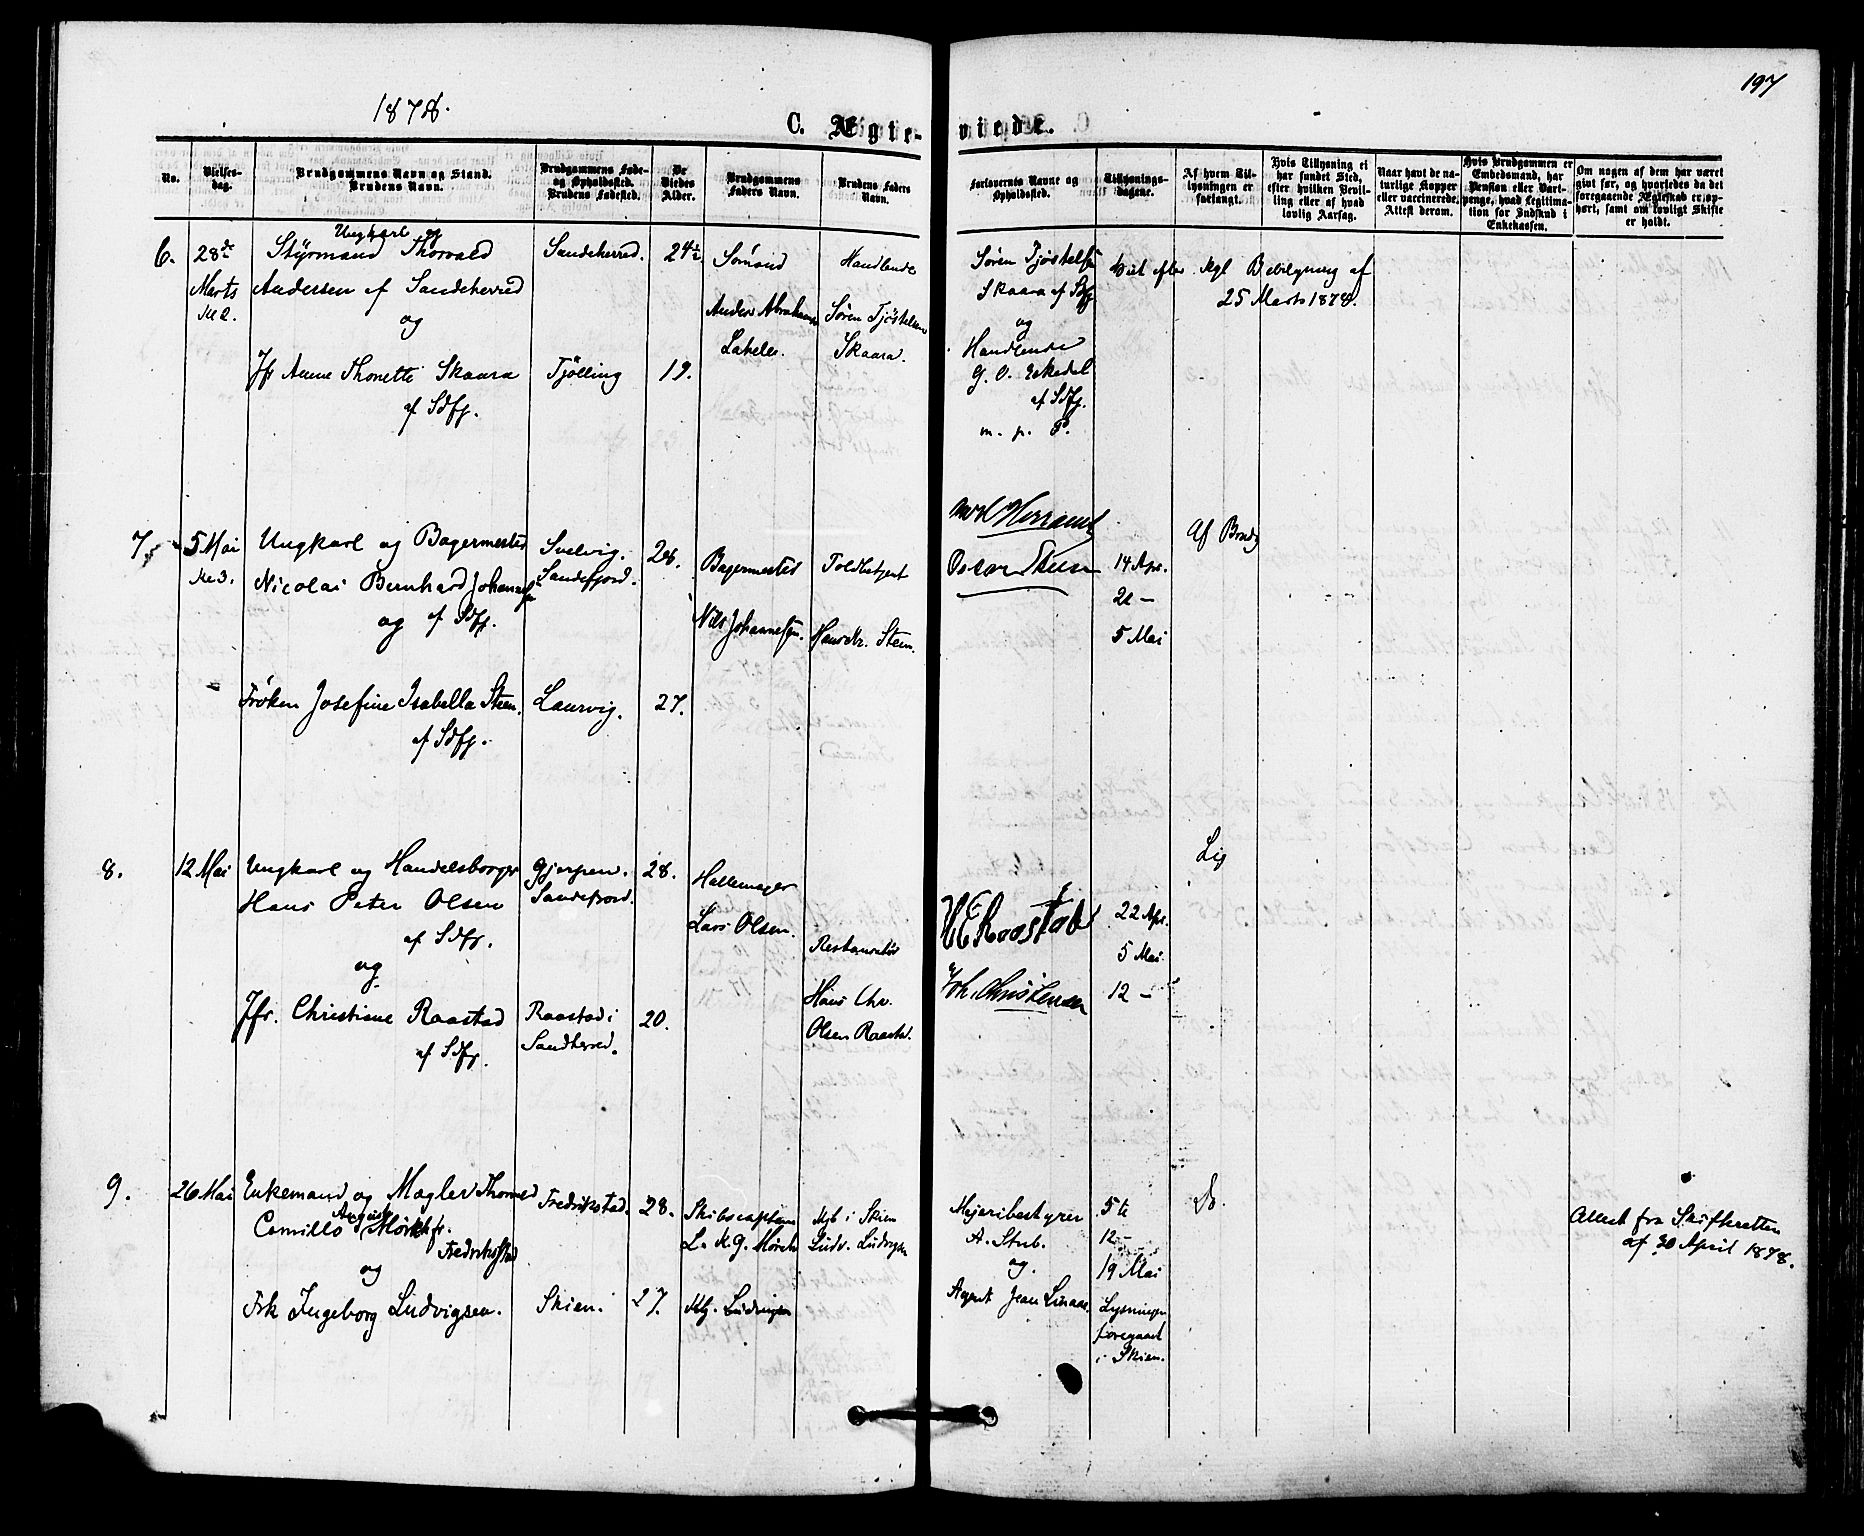 197
1878.
C. Ægte-viede.
No.
Vielses-dag.
Brudgommens Navn og Stand.
Brudens Navn.
Brudgommens Føde-
og Opholdssted.
Brudens Fødested.
De
Viedes
Alder.
Brudgommens
Faders Navn.
Brudens Faders
Navn.
Forlovernes Navne og
Opholdssted.
Tillysnings-
dagene.
Af hvem Til-
lysningen er
forlangt.
Hvis Tillysning ei
har fundet Sted,
efter hvilken Bevil-
ling eller af hvad
lovlig Aarsag.
Naar havt de na-
turlige Kopper
eller vaccinerede,
Attest derom.
Hvis Brudgommen er
Embedsmand, har
Pension eller Vart-
penge, hvad Legitima-
tion for Indskud i
Enkekassen.
Om nogen af dem har været
givt før, og hvorledes da det
foregaaende Ægteskab er op-
hørt, samt om lovligt Skifte
er holdt.
6.
28de
Marts
Kl 2.
Ungkarl og
Styrmand Thorvald
Andersen af Sandeherred
og
Jfr Anne Thonette Skaara
af Sdfj.
Sandeherred.
Tjølling
24½
19.
Sømand
Anders Abrahams
Handlende
Søren Tjøstelsen
Skaara.
Søren Tjøstelsen
Skaara af Sdfj
og
Handlende
G. O. Eskedal
af Sdfj.
m. p. P.
Viet efter Kgl Bevilgning af
25 Marts 1878.
7
5 Mai
Kl 3.
Ungkarl og Bagermester
Nicolai Bernhard Johannesen
og af Sdfj.
Frøken Josefine Isabella Steen
af Sdfj.
Svelvig.
Sandefjord.
Laurvig.
28.
27.
Bagermester
Nils Johannesen.
Toldbetjent
Hans Kr. Steen.
Oscar Steen
14 Apr.
21 —
5 Mai
Af Brudg
8.
12 Mai
Ungkarl og Handelsborger
Hans Peter Olsen
af Sdfj.
og
Jfr. Christiane Raastad
af Sdfj.
Gjerpen.
Sandefjord.
Raastad i
Sandherred.
28.
20.
Lars Olsen.
Restauratør
Hans Chr.
Olsen Raastad.
H E Raastad
Joh. Christensen
22 Apr.
5 Mai.
12 —
Lig
9.
26 Mai
Enkemand og Mægler Thorvald
Camillo August Mørch fr.
Fredriksstad
og
Frk Ingeborg Ludvigsen.
Fredrikstad.
Skien.
28.
27.
Skibscaptein
L. K. G. Mørch
Mgl. Ludvigsen
Mgl i Skien
Ludv. Ludvigsen
Mejeribestyrer
A. Stub.
og.
Agent Jean Linaae.
5te
12 —
19 Mai
Lysningen
foregaaet
i Skien.
Do.
Attest fra Skifteretten
af 30 April 1878.